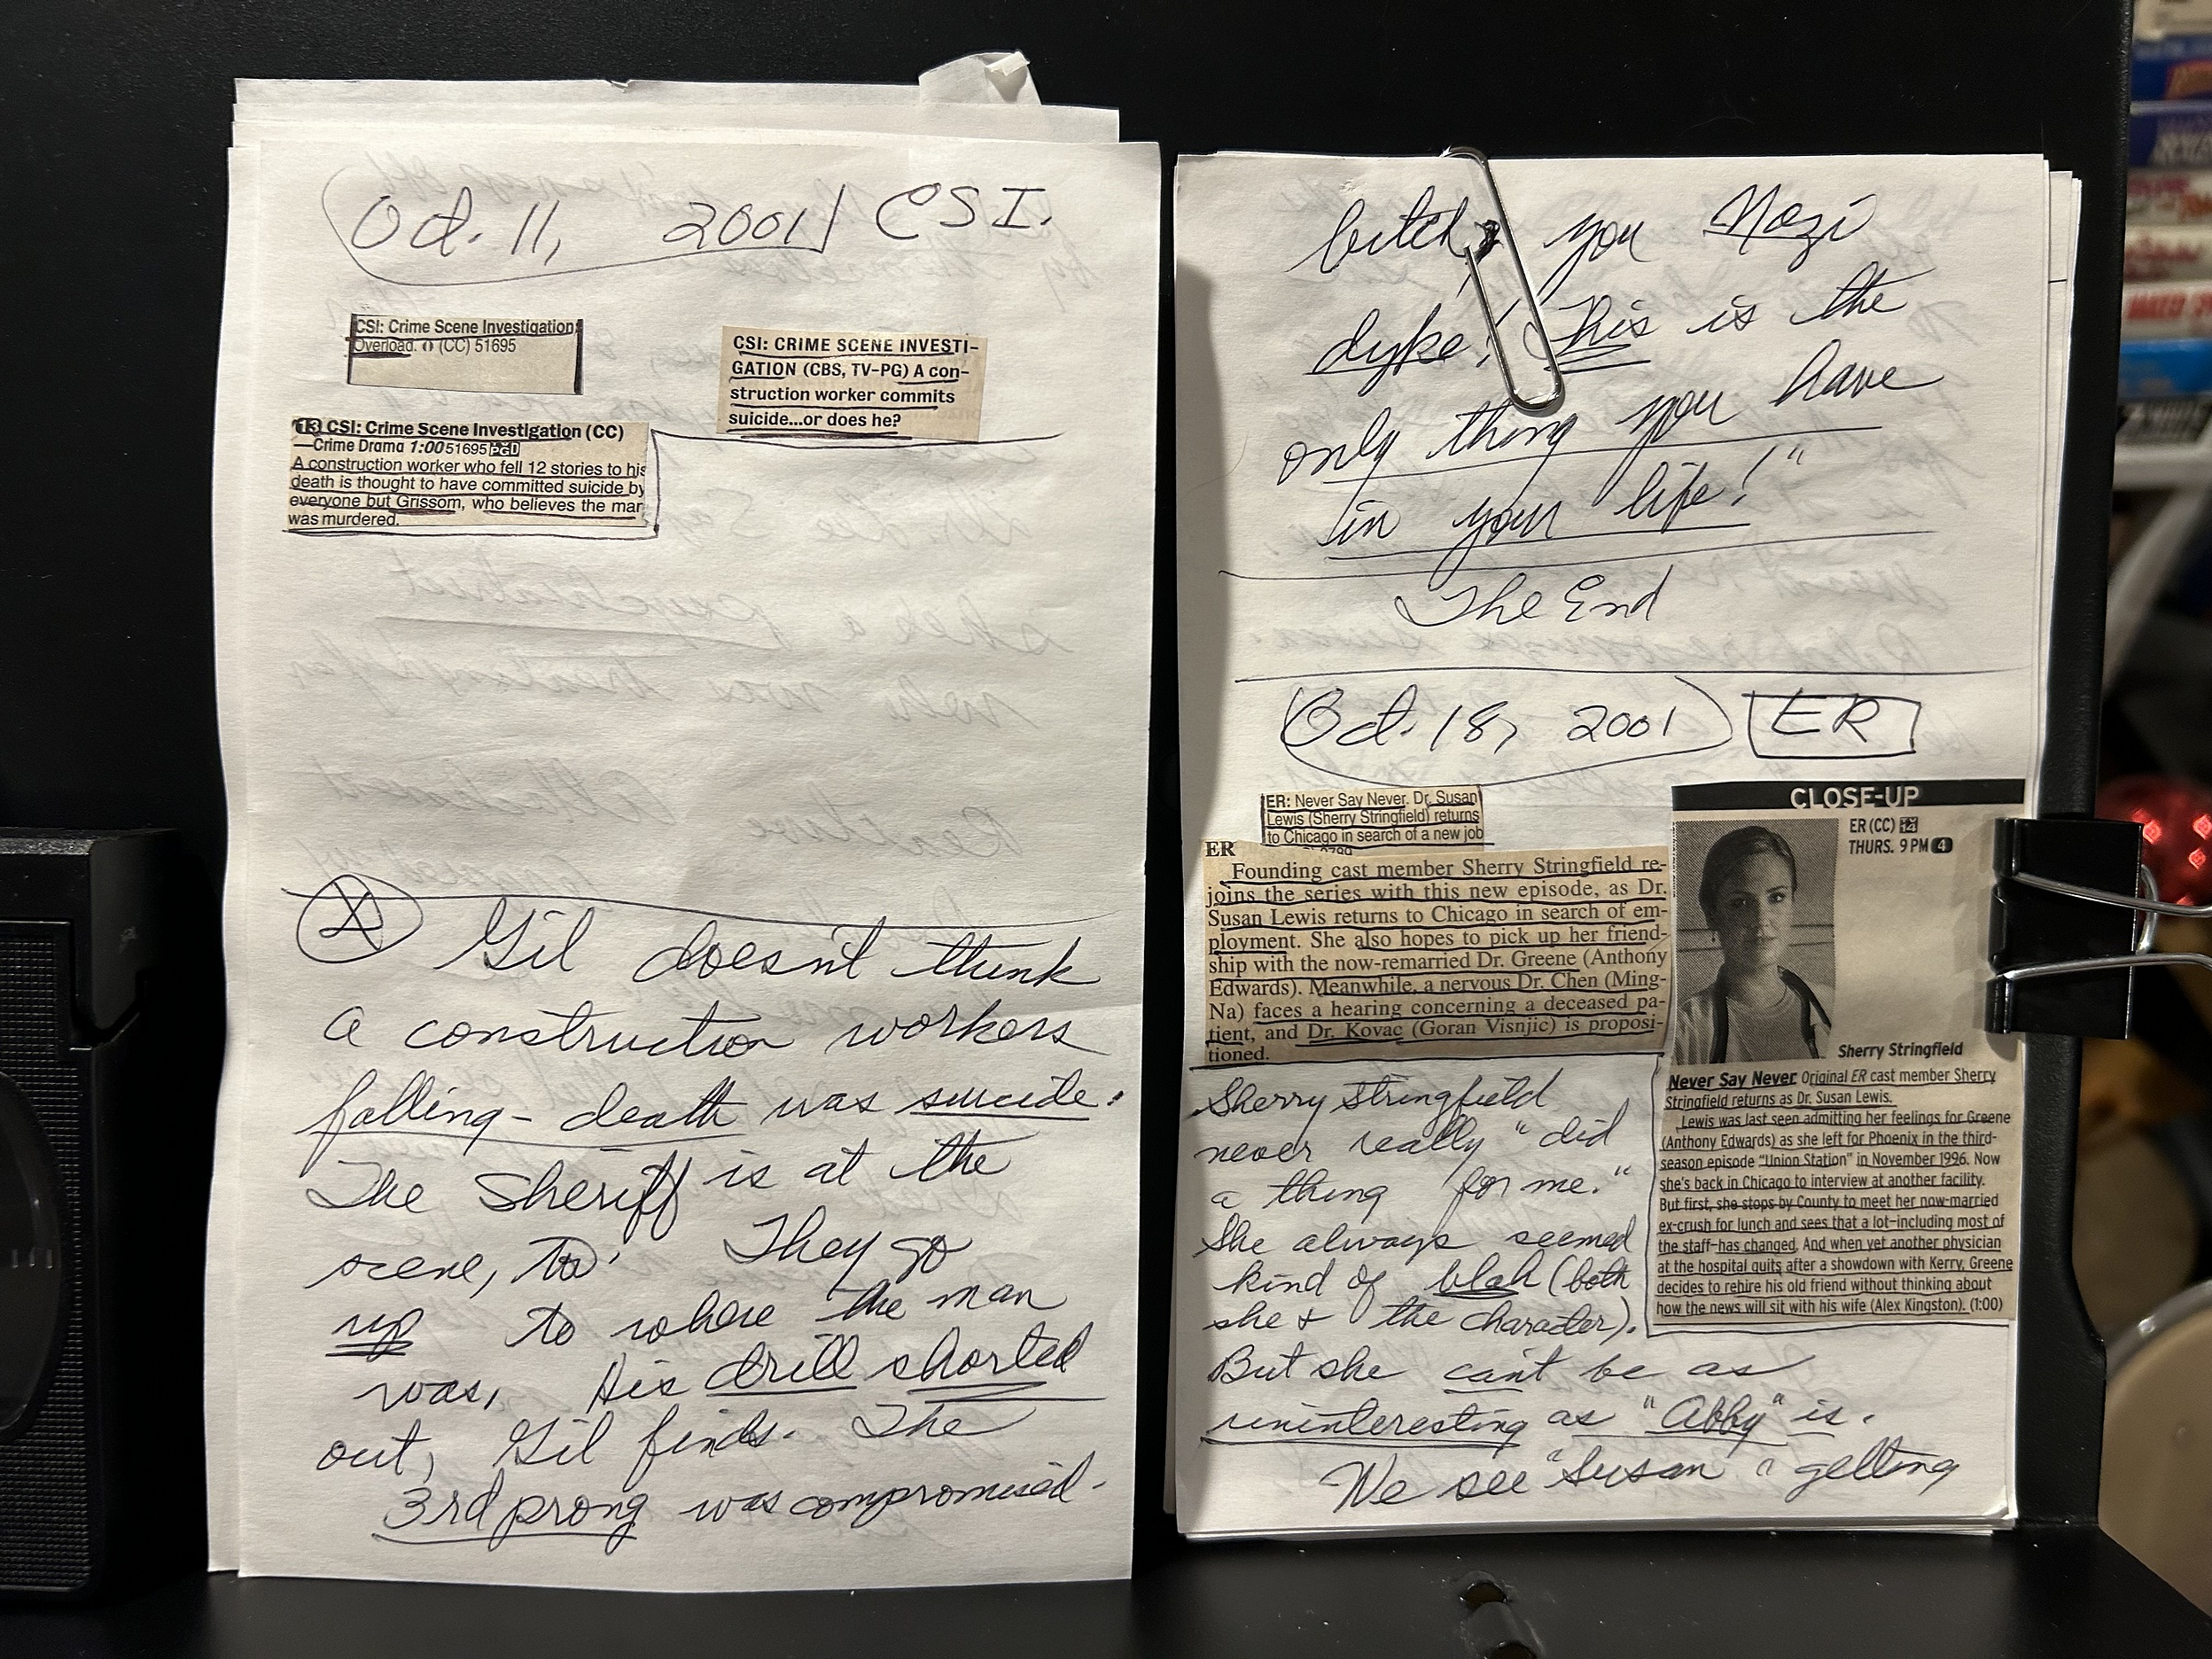 Oct. 11, 2001 CSI.
CSI: Crime Scene Investigation:
Overload. (CC) 51695
CSI: CRIME SCENE INVESTI-
GATION (CBS, TV-PG) A con-
struction worker commits
suicide...or does he?
13 CSI: Crime Scene Investigation (CC)
—Crime Drama 1:00 51695 PGD
A construction worker who fell 12 stories to his
death is thought to have committed suicide by
everyone but Grissom, who believes the man
was murdered.
Gil doesn't think
a construction workers
falling-death was suicide.
The Sheriff is at the
scene, too. They go
up to where the man
was. His drill shorted
out, Gil finds. The
3rd prong was compromised.
bitch, you Nazi
dyke! This is the
only thing you have
in your life!"
The End
Oct. 18, 2001 ER
ER: Never Say Never. Dr. Susan
Lewis (Sherry Stringfield) returns
to Chicago in search of a new job
ER
Founding cast member Sherry Stringfield re-
joins the series with this new episode, as Dr.
Susan Lewis returns to Chicago in search of em-
ployment. She also hopes to pick up her friend-
ship with the now-remarried Dr. Greene (Anthony
Edwards). Meanwhile, a nervous Dr. Chen (Ming-
Na) faces a hearing concerning a deceased pa-
tient, and Dr. Kovac (Goran Visnjic) is proposi-
tioned.
CLOSE-UP
ER (CC) 14
THURS. 9 PM 4
Sherry Stringfield
Never Say Never Original ER cast member Sherry
Stringfield returns as Dr. Susan Lewis.
Lewis was last seen admitting her feelings for Greene
(Anthony Edwards) as she left for Phoenix in the third-
season episode "Union Station" in November 1996. Now
she's back in Chicago to interview at another facility.
But first, she stops by County to meet her now-married
ex-crush for lunch and sees that a lot-including most of
the staff-has changed. And when yet another physician
at the hospital quits after a showdown with Kerry, Greene
decides to rehire his old friend without thinking about
how the news will sit with his wife (Alex Kingston). (1:00)
Sherry Stringfield
never really "did
a thing for me."
She always seemed
kind of blah (both
she + the character).
But she can't be as
uninteresting as "Abby" is.
We see "Susan" getting